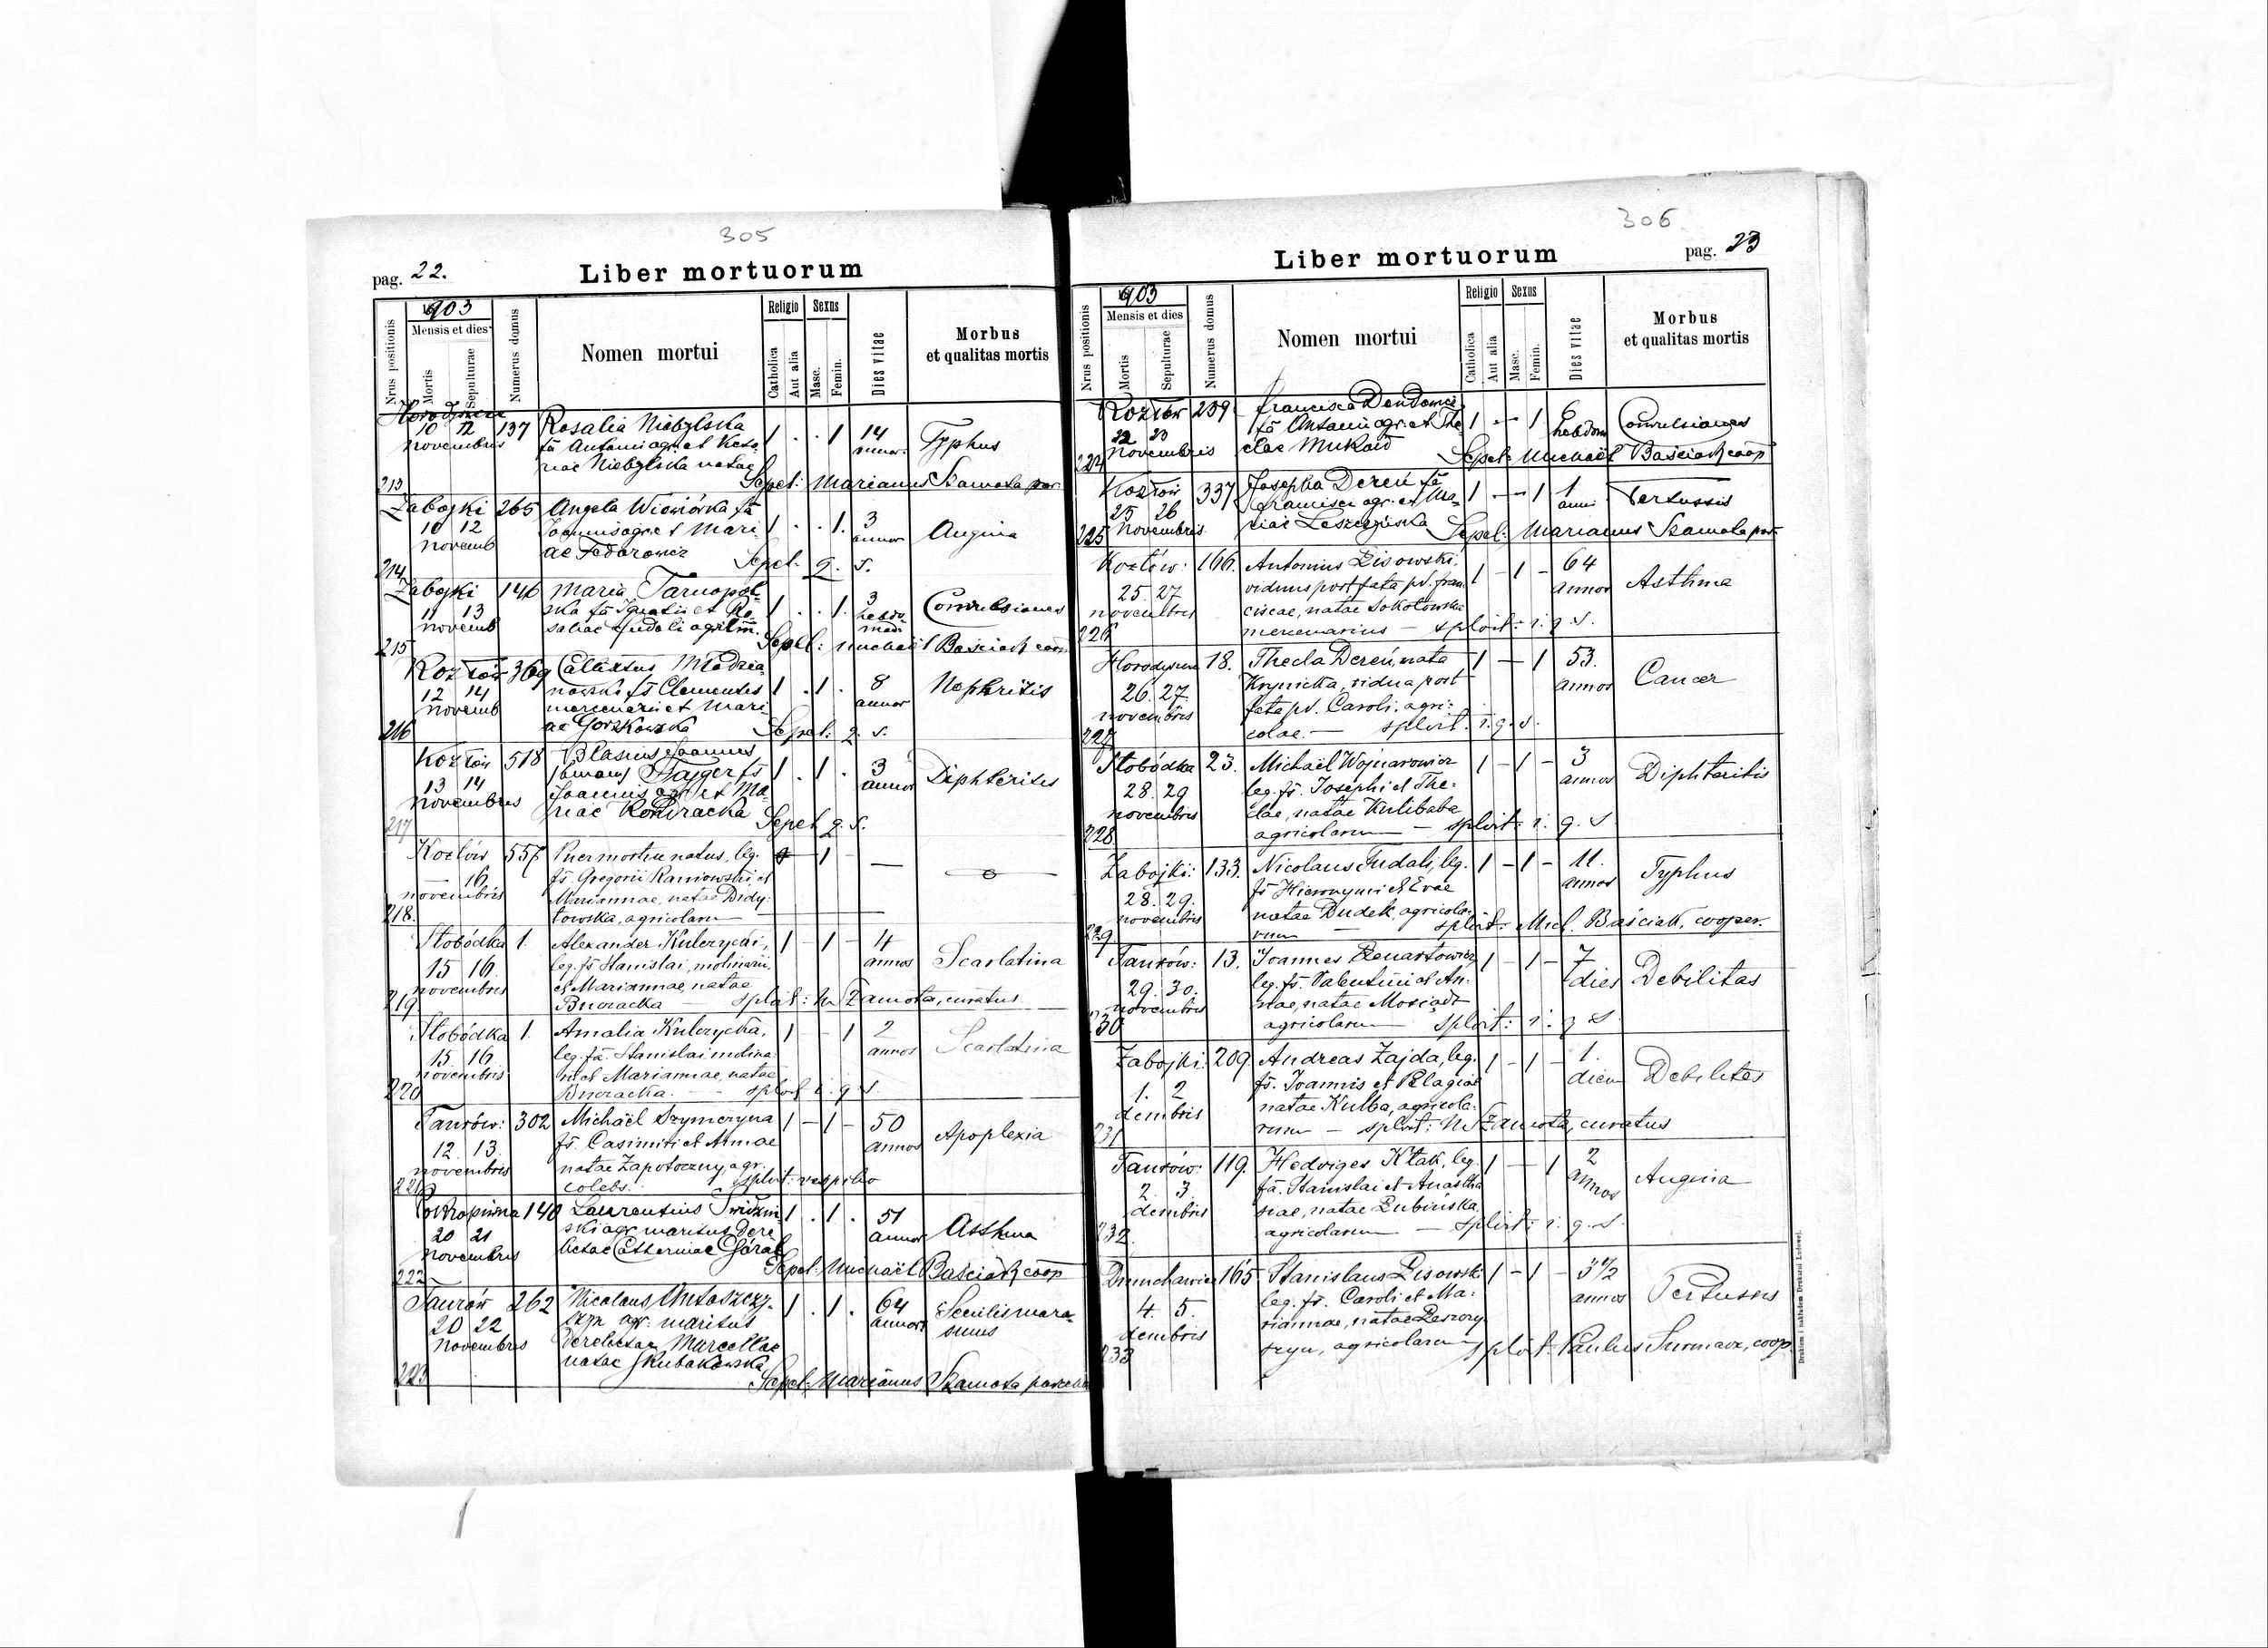 305
pag. 22.
Liber mortuorum
Nrus positionis
1903
Mensis et dies
Mortis
Sepulturae
Numerus domus
Nomen mortui
Religio
Catholica
Aut alia
Sexus
Masc.
Femin.
Dies vitae
Morbus
et qualitas mortis
Horodyszcze
10 12 137 Rosalia Niebylska 1 . . 1 14 Typhus
novembris fa Antonii agr. et Kata- annor.
riae Niebylska natae
213 Sepel: Marianus Szamota par
Zabojki 265 Angela Wiewiórka fa
10 12 Joannis agr. et Mari 1 . . 1. 3 Angina
novemb ae Fedorowicz annor
214 Sepel. q. s.
Zabojki 146 Maria Tarnopol-
11 13 ska fa Ignatii et Ro- 1 . . 1. 3 Convulsiones
novemb saliae Gudali agric. hebdo-
madi
215 Sepel: Michaël Baściak coop
Kozłów 369 Calixtus Miedzia-
12 14 nowski fs Clementis 1 . 1 . 8 Nephritis
novemb mercenarii et Mari- annor
216 ae Gorzkowska Sepel: q. s.
Kozłów 518 Blasius Joannes
13 14 Tajger fs 1 . 1 . 3 Diphteritis
novembris Joannis agr. et Ma- annor
riae Kondracka
217 Sepel q. s.
Kozłów 557 Puer mortuus natus, leg. 1 —
— 16 fs. Gregorii Raniowski, et
novembris Mariannae, natae Didy-
218. towska, agricolarum
Słobódka 1. Alexander Kulczycki, 1 - 1 - 4 Scarlatina
15 16. leg. fs Stanislai, molinarii, annos
novembris et Mariannae, natae
219 Bnoracka — splvit: M Szamota, curatus.
Słobódka 1. Amalia Kulczycka, 1 - 1 2 Scarlatina
15. 16. leg. fa. Stanislai molina- annos
novembris rii et Mariannae, natae
220 Bnoracka. — splvit i. q. s.
Taurów: 302 Michaël Szymczyna 1 - 1 - 50 Apoplexia
12. 13. fs. Casimiri et Annae annos
novembris natae Zapotoczny, agr.
221 coelebs. splvit: vespilio
Pokropiwna 140 Laurentius Świdziń- 1 . 1 . 51 Asthma
20 21 ski agr. maritus dere annor
novembris lictae Catherinae Góral
222 Sepel: Michaël Baściak coop
Taurów 262 Nicolaus Antoszczy- 1 . 1 . 64 Senilis mara-
20 22 szyn agr. maritus annor. smus
novembris derelictae Marcellae
natae Kubakowska
223 Sepel: Marianus Szamota
306
Liber mortuorum
pag. 23
Nrus positionis
1903
Mensis et dies
Mortis
Sepulturae
Numerus domus
Nomen mortui
Religio
Catholica
Aut alia
Sexus
Masc.
Femin.
Dies vitae
Morbus
et qualitas mortis
Kozłów 239 Francisca Dendewicz
22 23 fa Antonii agr. et The- 1 - - 1 hebdom Convulsiones
novembris clae Mukoid
224 Sepel: Michaël Baściak coop
Kozłów 337 Josepha Dereń fa
25 26 Francisci agr. et Ma- 1 - - 1 1 Pertussis
novembris riae Leszczyńska anni
225 Sepel: Marianus Szamota par.
Kozłów: 166. Antonius Lisowski, 64
25. 27 viduus post fata pd. Fran- 1 - 1 - annos Asthma
novembris ciscae, natae Sokołowska
226 mercenarius — splvit: i. q. s.
Horodyszcze 18. Thecla Dereń, nata 1 - 1 53. Cancer
26. 27. Krynicka, vidua post annos
novembris fata pd. Caroli, agri-
227 colae. — splvit: i. q. s.
Słobódka 23. Michaël Wojnarowicz 1 - 1 - 3 Diphteritis
28. 29 leg. fs. Josephi et The- annos
novembris clae, natae Kulibaba
228 agricolarum — splvit: i. q. s
Zabojki: 133. Nicolaus Gudali, leg. 1 - 1 - 11. Typhus
28. 29. fs Hieronymi et Evae annos
novembris natae Dudek, agricola-
229 rum — splvit: Mich. Baściak, cooper.
Taurów: 13. Joannes Renartowicz 1 - 1 - 7 Debilitas
29. 30. leg. fs. Valentini et An- dies
novembris nae, natae Mosiądz
230 agricolarum splvit: i. q. s
Zabojki: 209. Andreas Zajda, leg. 1 - 1 - 1. Debilitas
1. 2 fs. Joannis et Pelagiae diem
dcembris natae Kulba, agricola-
231 rum — splvit: M Szamota, curatus
Taurów: 119. Hedviges Kłak, leg. 1 - 1 2 Angina
2. 3. fa. Stanislai et Anasta- annos
dcembris siae, natae Łubińska,
232. agricolarum — splvit: i. q. s.
Dmuchawiec 165 Stanislaus Lisowski 1 - 1 - 3 1/2 Pertussis
4. 5. leg. fs. Caroli et Ma- annos
dcembris riannae, natae
233 agricolarum splvit: Paulus Surmacz, coop.
Drukiem i nakładem Drukarni Ludowej.